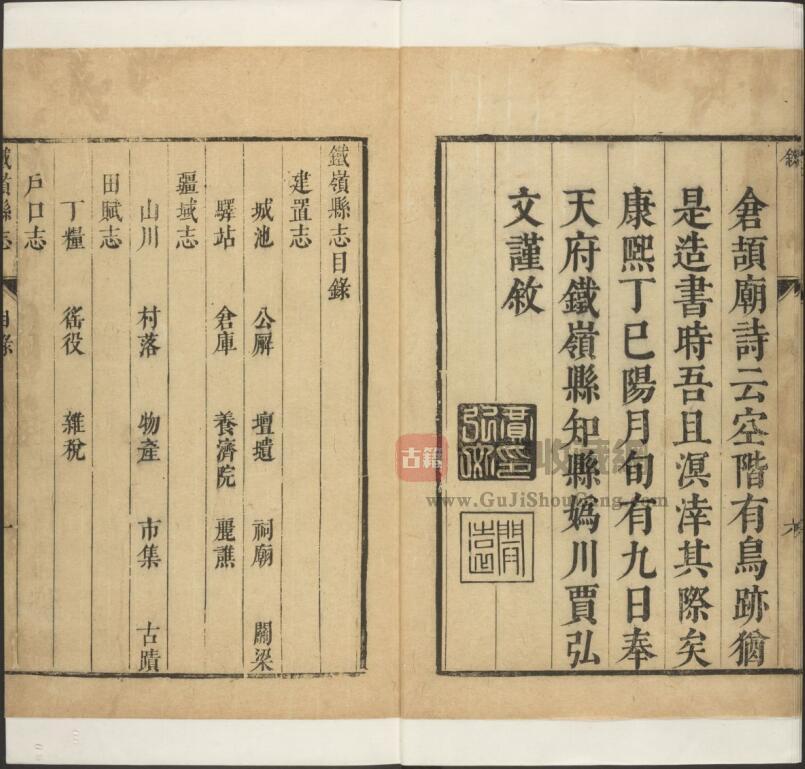 倉頡廟詩云空階有鳥跡猶
是造書時吾且溟涬其際矣
康熙丁巳陽月旬有九日奉
天府鐵嶺縣知縣嬀川賈弘
文謹敘
鐵嶺縣志目錄
建置志
城池 公廨 壇壝 祠廟 關梁
驛站 倉庫 養濟院 麗譙
疆域志
山川 村落 物產 市集 古蹟
田賦志
丁糧 徭役 雜稅
戶口志
鐵嶺縣志 目錄 一
古籍
收藏
www.GuJiShouCang.com